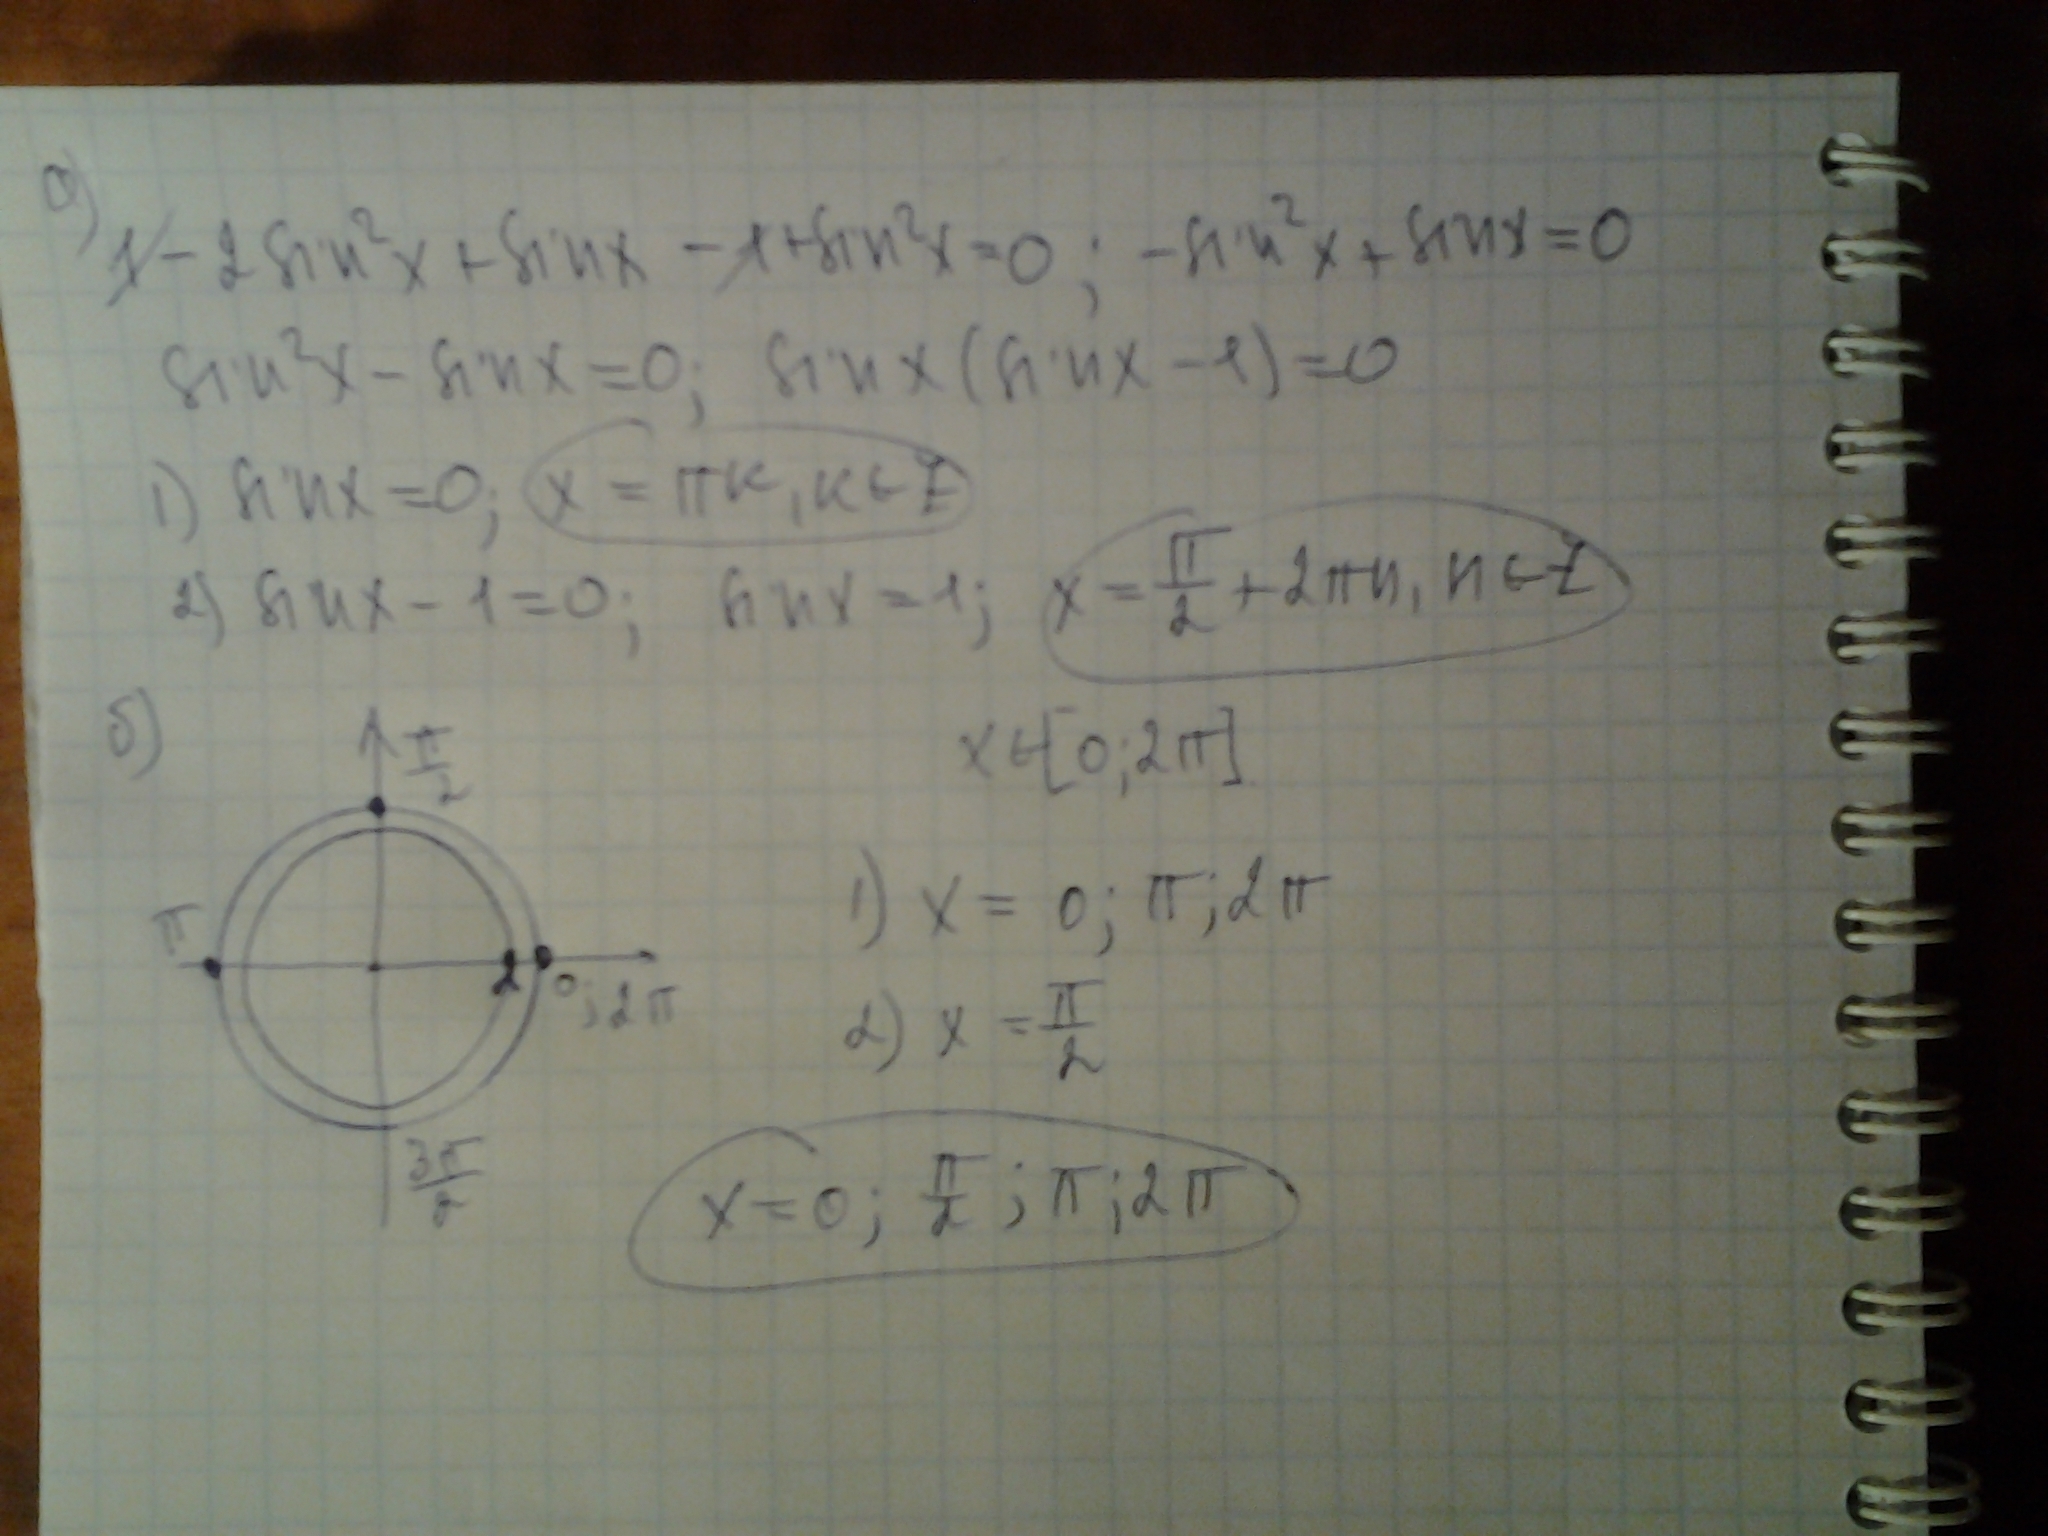 а)
1 - 2 sin²x + sinx - 1 + sin²x = 0 ; - sin²x + sinx = 0
sin²x - sinx = 0; sinx (sinx - 1) = 0
1) sinx = 0; x = πк, к ∈ Z
2) sinx - 1 = 0; sinx = 1; x = π/2 + 2πn, n ∈ Z
б)
π/2
x ∈ [0; 2π]
π
0; 2π
3π/2
1) x = 0; π; 2π
2) x = π/2
x = 0; π/2 ; π; 2π